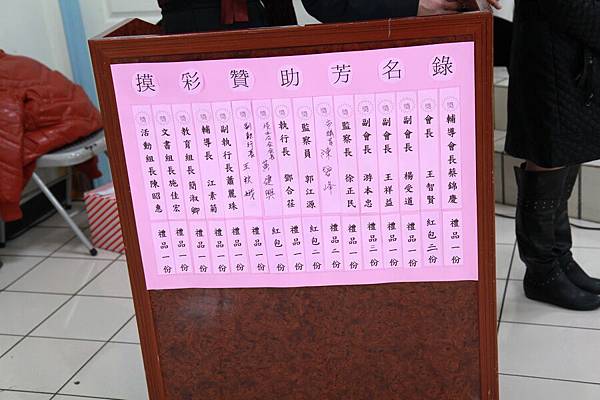 摸彩贊助芳名錄
獎 輔導會長蔡錦慶 禮品一份
獎 會長 王智賢 紅包二份
獎 副會長 楊受道 禮品一份
獎 副會長 王祥益 禮品一份
獎 副會長 游本忠 禮品三份
獎 監察長 徐正民 禮品一份
獎 陳 禮品二份
獎 監察員 郭江源 紅包二份
獎 執行長 鄧合荏 禮品一份
獎 黃建興 紅包一份
獎 副執行長 王 禮品一份
獎 副執行長蕭麗珠 禮品一份
獎 輔導長 江素菊 禮品一份
獎 教育組長簡淑卿 禮品一份
獎 文書組長施佳宏 禮品一份
獎 活動組長陳昭惠 禮品一份